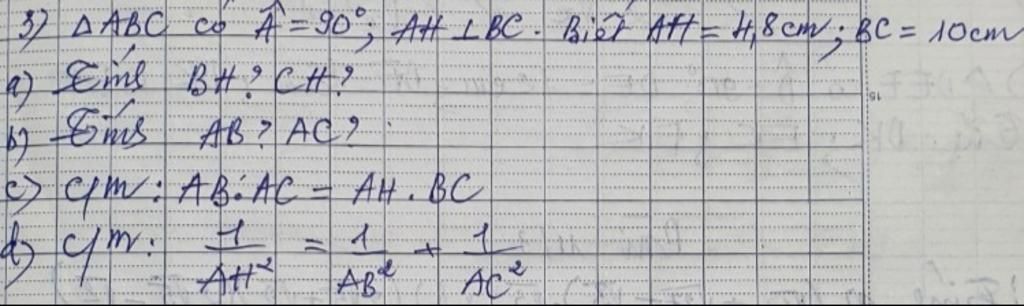 3) △ABC có Â = 90°; AH ⊥ BC. Biết AH = 4,8cm; BC = 10cm
a) Tính BH? CH?
b) Tính AB? AC?
c) C/m: AB.AC = AH.BC
d) C/m: 1/AH² = 1/AB² + 1/AC²